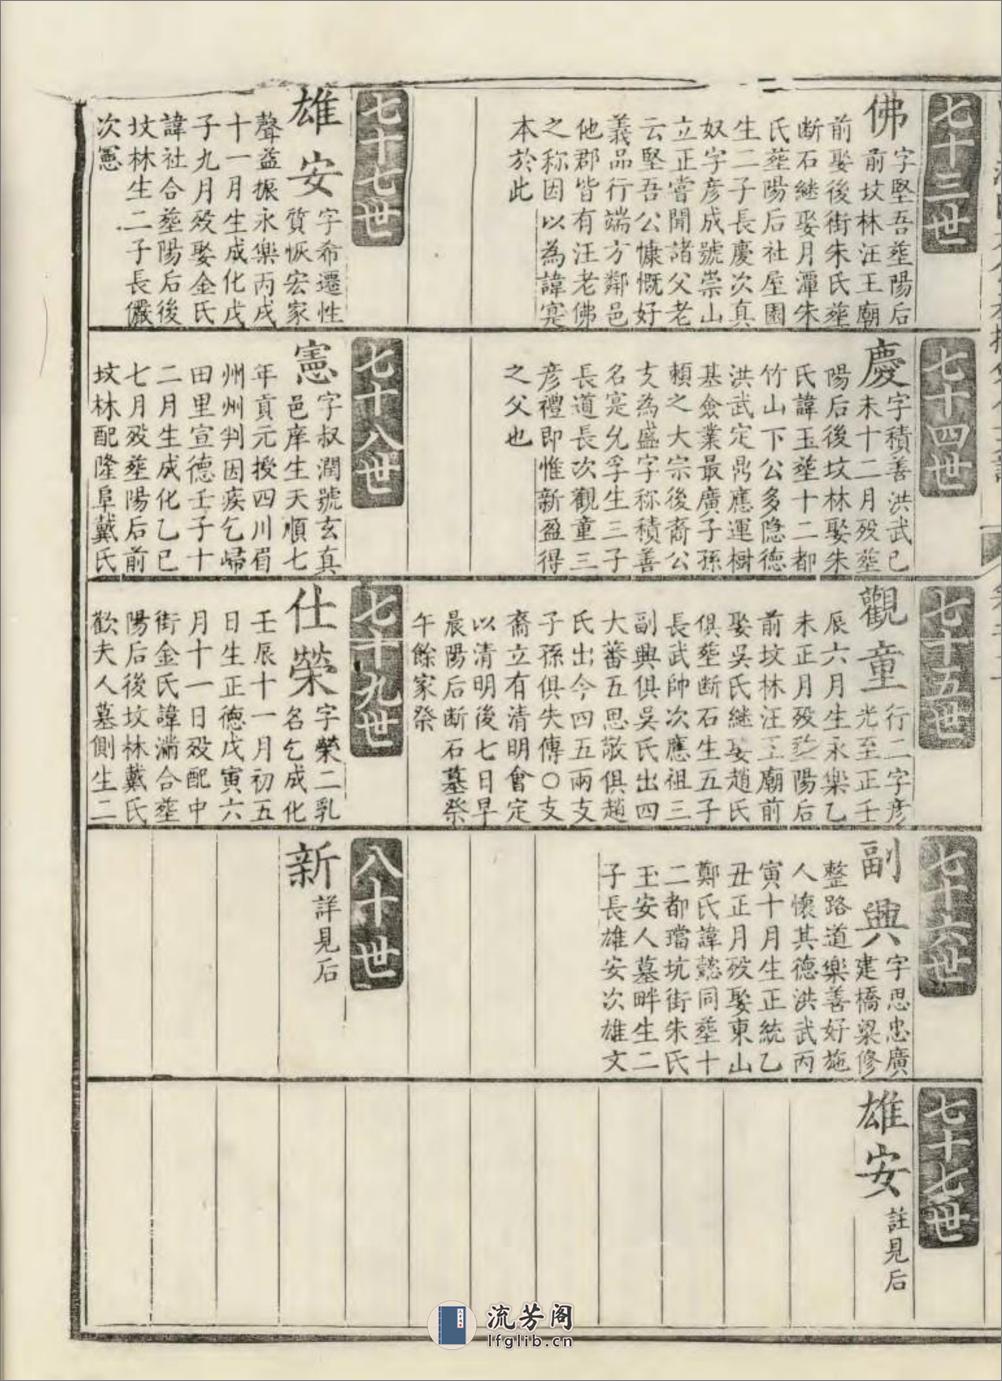 七十三世
佛
字堅吾塟陽后
前坟林汪王廟
前娶後街朱氏塟
断石継娶月潭朱
氏塟陽后社屋園
生二子長慶次真
奴字彦成號崇山
立正嘗聞諸父老
云堅吾公慷慨好
義品行端方鄰邑
他郡皆有汪老佛
之称因以為諱寔
本於此
七十四世
慶
字積善洪武己
未十二月歿塟
陽后後坟林娶朱
氏諱玉塟十二都
竹山下公多隐德
洪武定鼎應運樹
基僉業最廣子孫
賴之大宗後裔公
支為盛字称積善
名寔允孚生三子
長道長次觀童三
彦禮即惟新盈得
之父也
七十五世
觀童
行二字彦
光至正壬
辰六月生永樂乙
未正月歿塟陽后
前坟林汪王廟前
娶吴氏継娶趙氏
俱塟断石生五子
長武帥次應祖三
副興俱吴氏出四
大蕃五思敬俱趙
氏出今四五兩支
子孫俱失傳〇支
裔立有清明會定
以清明後七日早
晨陽后断石墓祭
午餘家祭
七十六世
副興
字思忠廣
建橋梁修
整路道樂善好施
人懷其德洪武丙
寅十月生正統乙
丑正月歿娶東山
鄭氏諱懿同塟十
二都璫坑街朱氏
玉安人墓畔生二
子長雄安次雄文
七十七世
雄安
註見后
七十七世
雄安
字希遷性
質恢宏家
聲益振永樂丙戌
十一月生成化戊
子九月歿娶金氏
諱社合塟陽后後
坟林生二子長儼
次憲
七十八世
憲
字叔潤號玄真
邑庠生天順七
年貢元授四川眉
州州判因疾乞歸
田里宣德壬子十
二月生成化乙巳
七月歿塟陽后前
坟林配隆阜戴氏
七十九世
仕榮
字榮二乳
名乞成化
壬辰十一月初五
日生正德戊寅六
月十一日歿配中
街金氏諱滿合塟
陽后後坟林戴氏
歡夫人墓側生二
八十世
新
詳見后
流芳阁
lfglib.cn